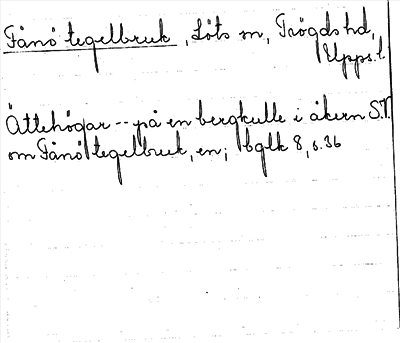 Fånö tegelbruk, Löts sn, Trögds hd,
Upps. l.
Ättehögar -- på en bergkulle i åkern S.V.
om Fånö tegelbruk, en; bglk 8, s. 36